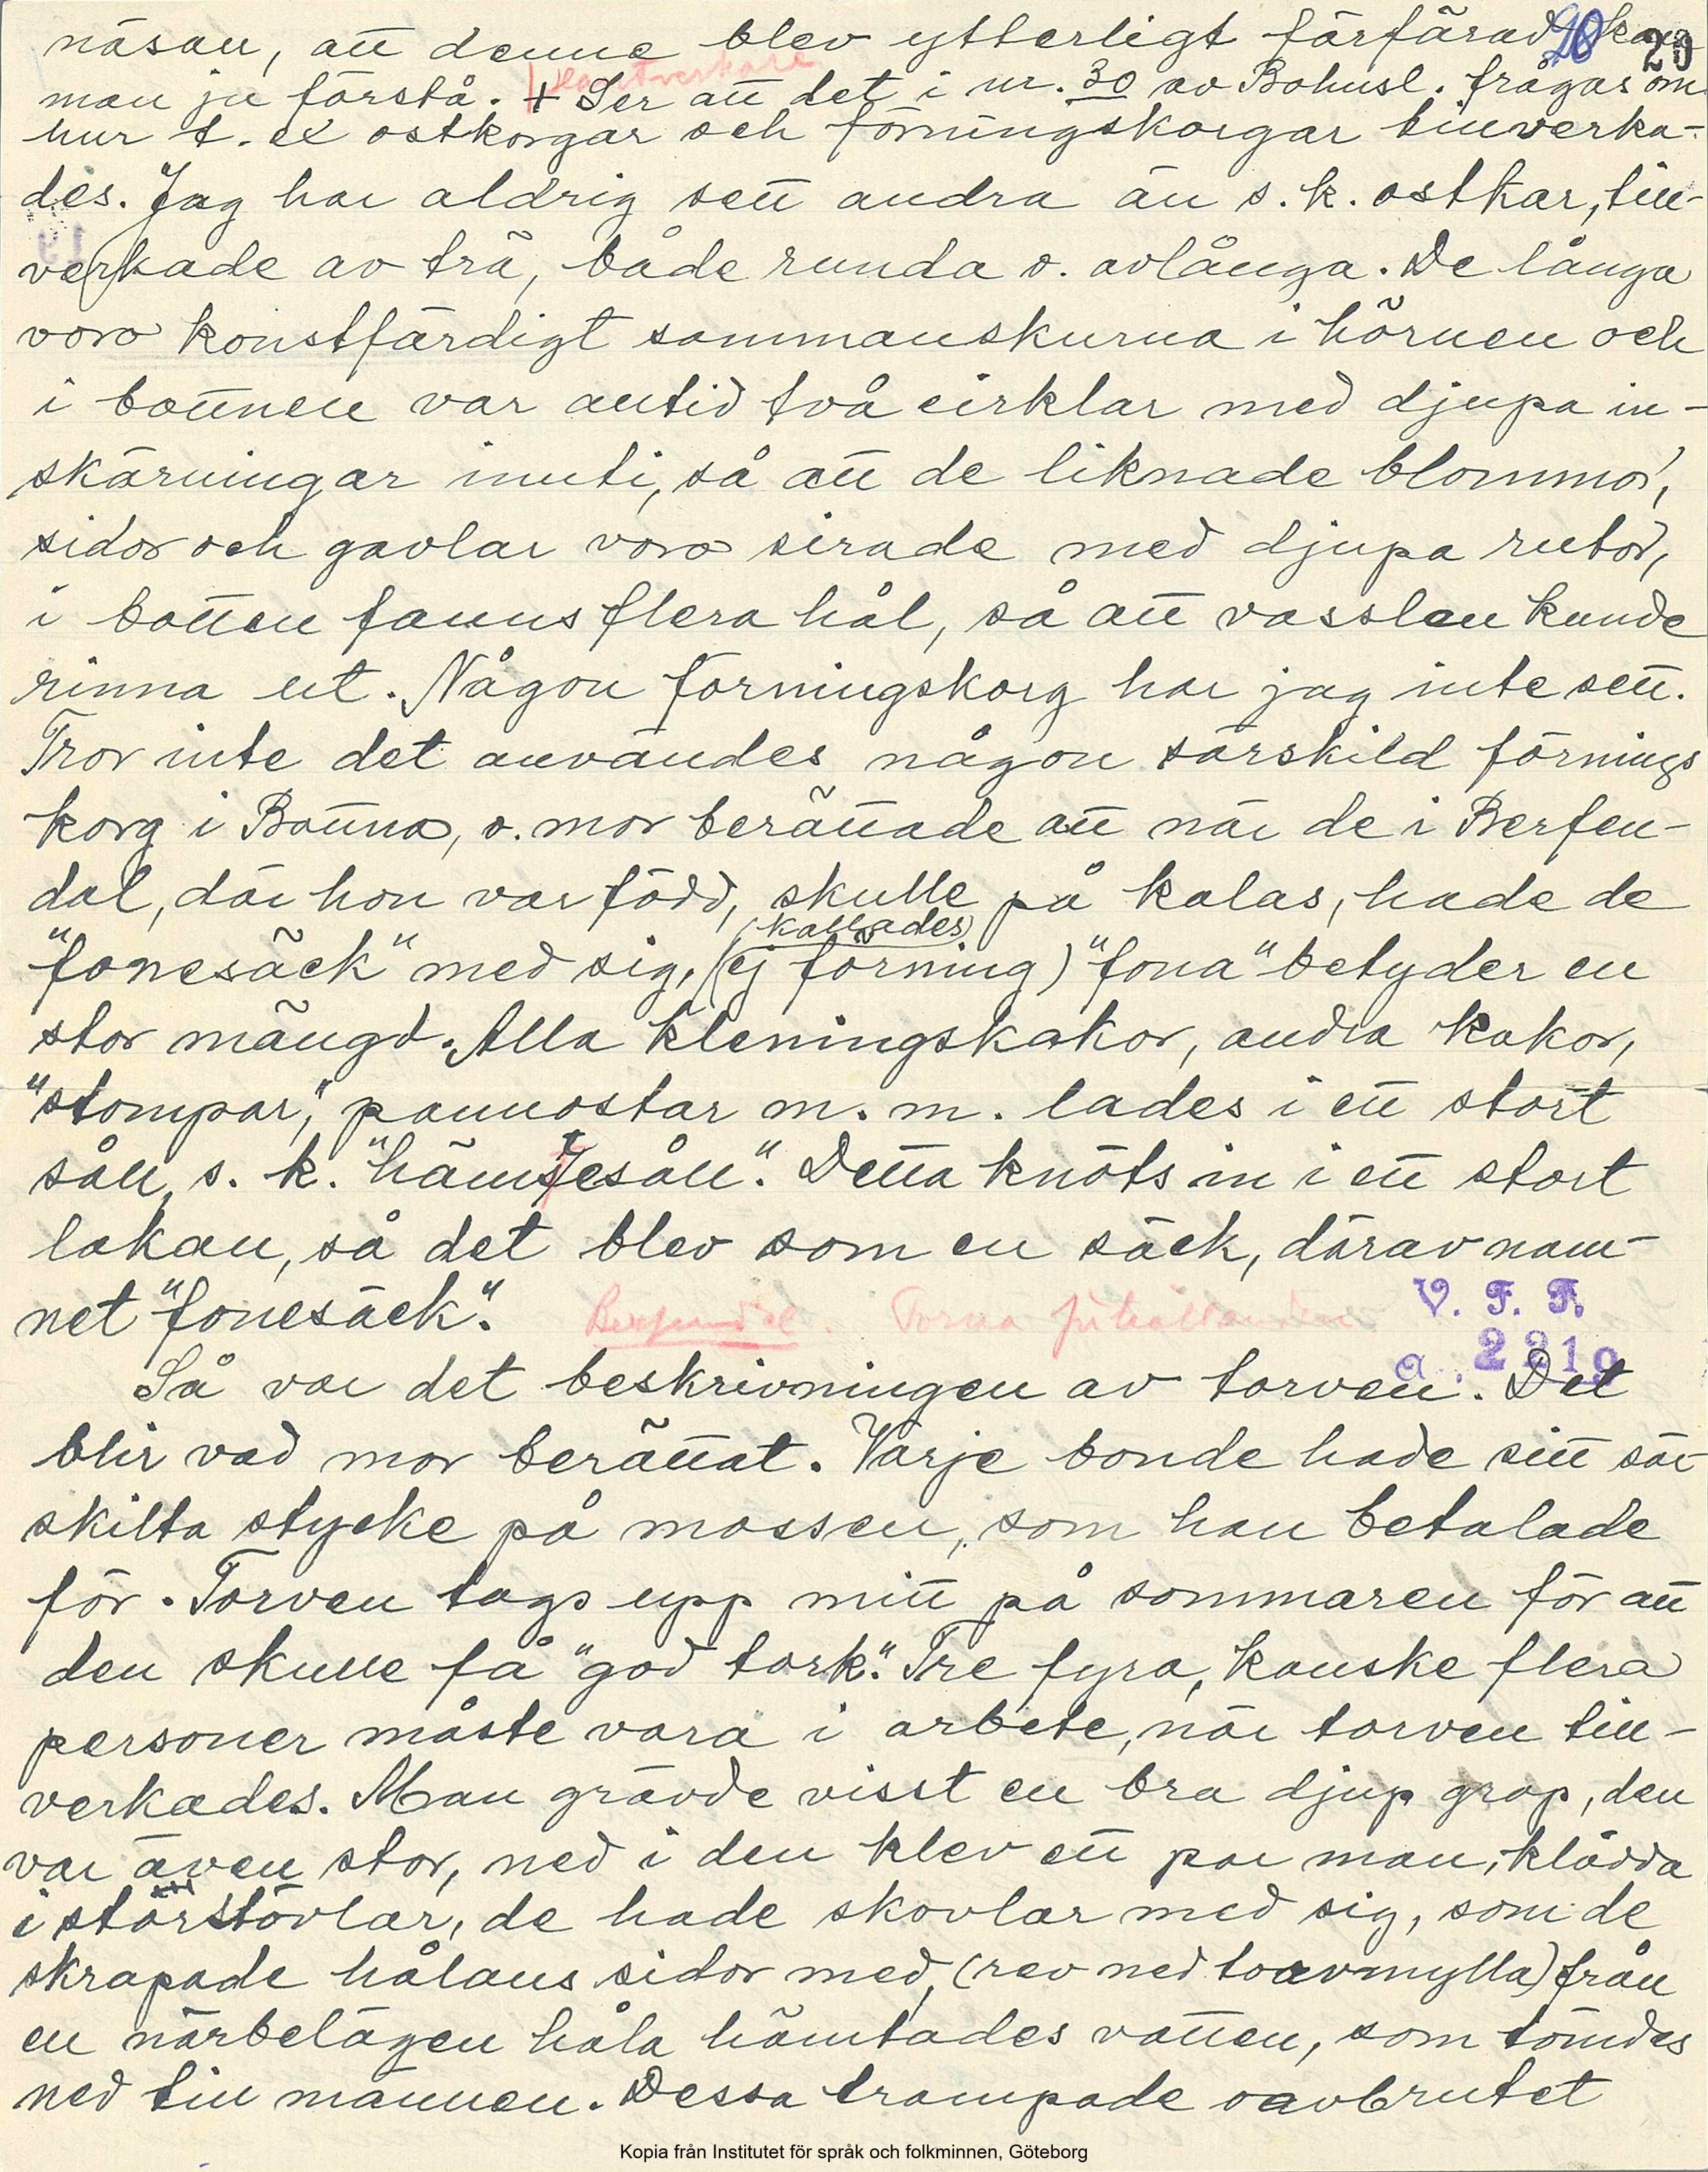 20 29
näsan, att denne blev ytterligt förfärad kan
Hantverkare
man ju förstå. + Ser att det i nr. 30 av Bohusl. frågas om
hur t. ex ostkorgar och förningskorgar tillverka-
des. Jag har aldrig sett andra än s. k. ostkar, till-
verkade av trä, både runda o. avlånga. De långa
voro konstfärdigt sammanskurna i hörnen och
i bottnen var alltid två cirklar med djupa in-
skärningar inuti, så att de liknade blommor,
sidor och gavlar voro sirade med djupa rutor,
i botten fanns flera hål, så att vasslen kunde
rinna ut. Någon förningskorg har jag inte sett.
Tror inte det användes någon särskild förnings
korg i Bottna, o. mor berättade att när de i Berfen-
dal, där hon var född, skulle på kalas, hade de
(kallades)
"fonesäck" med sig, (ej förning) "fona" betyder en
stor mängd. Alla kleningskakor, andra kakor,
"stompar", pannostar m. m. lades i ett stort
såll, s. k. "hämtesåll". Detta knöts in i ett stort
lakan, så det blev som en säck, därav nam-
net "fonesäck".
Berfendal. Forna förhållanden.
V. F. F.
a. 2219
Så var det beskrivningen av torven. Det
blir vad mor berättat. Varje bonde hade sitt sär-
skilta stycke på mossen, som han betalade
för. Torven togs upp mitt på sommaren för att
den skulle få "god tork". Tre fyra, kanske flera
personer måste vara i arbete, när torven till-
verkades. Man grävde visst en bra djup grop, den
var även stor, ned i den klev ett par man, klädda
i storstövlar, de hade skovlar med sig, som de
skrapade hålans sidor med, (rev ned torvmylla) från
en närbelägen håla hämtades vatten, som tömdes
ned till männen. Dessa trampade oavbrutet
Kopia från Institutet för språk och folkminnen, Göteborg